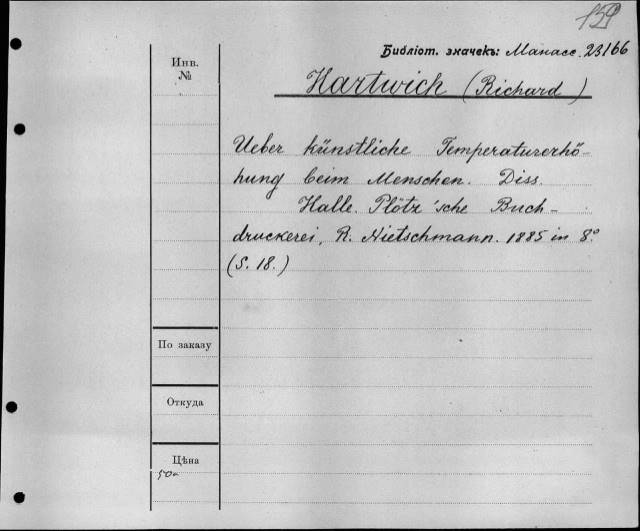 159
Библіот. значекъ: Манасс. 23166
Инв.
№
Hartwich (Richard)
Ueber künstliche Temperaturerhö-
hung beim Menschen. Diss.
Halle. Plötz'sche Buch-
druckerei, R. Nietschmann. 1885 in 8.°
(S. 18.)
По заказу
Откуда
Цѣна
50